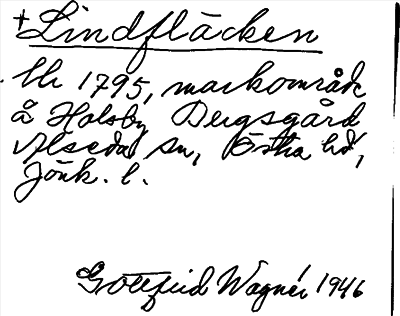 + Lindfläcken
Ur 1795, markområde
å Holsby Bergsgård
Alseda sn, Östra hd,
Jönk. l.
Gottfrid Wagnér 1946